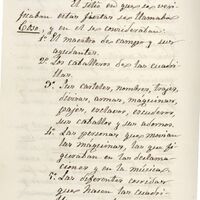 El sitio en que se veri-
ficaban estas fiestas se llamaba
Coso, y en él se consideraban:
1º El maestro de campo y sus
ayudantes.
2º Los caballeros de las cuadri-
llas.
3º Sus carteles, nombres, trajes,
divisas, armas, maquinas,
pajes, esclavos, escuderos
sus caballos y sus adornos.
4º Las personas que movian
las maquinas, las que fi-
guraban en las declama-
ciones y en la musica.
5º Las diferentes corridas
que hacen las cuadri-